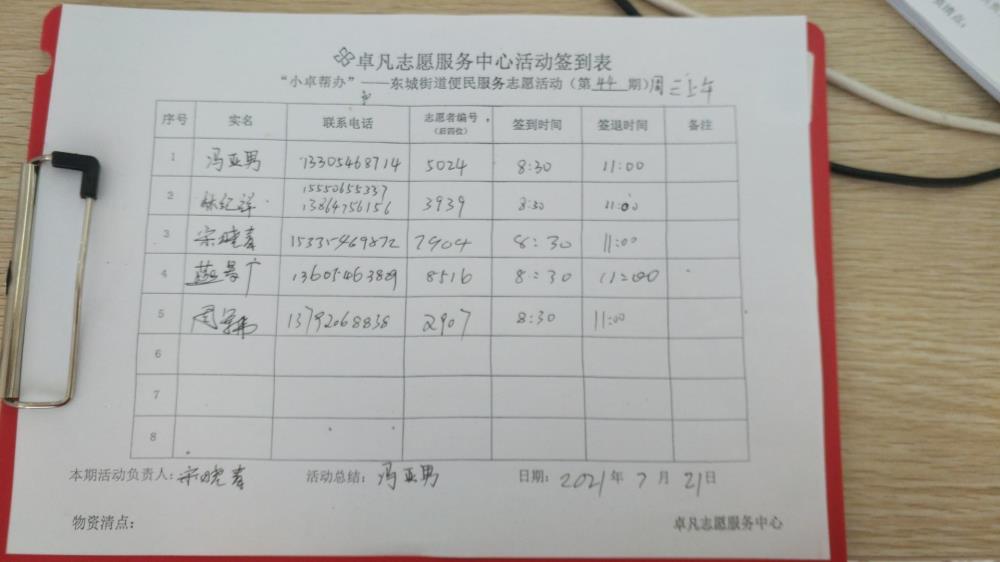 卓凡志愿服务中心活动签到表
“小卓帮办”——东城街道便民服务志愿活动(第44期)周三上午
序号 实名 联系电话 志愿者编号(后四位) 签到时间 签退时间 备注
1 冯亚男 13305468714 5024 8:30 11:00
2 15550655337
13864756156 3939 8:30 11:00
3 宋晓春 15335469872 7904 8:30 11:00
4 13605463809 8516 8:30 11:00
5 13792068838 2907 8:30 11:00
6
7
8
本期活动负责人:宋晓春 活动总结:冯亚男 日期:2021年7月21日
物资清点: 卓凡志愿服务中心